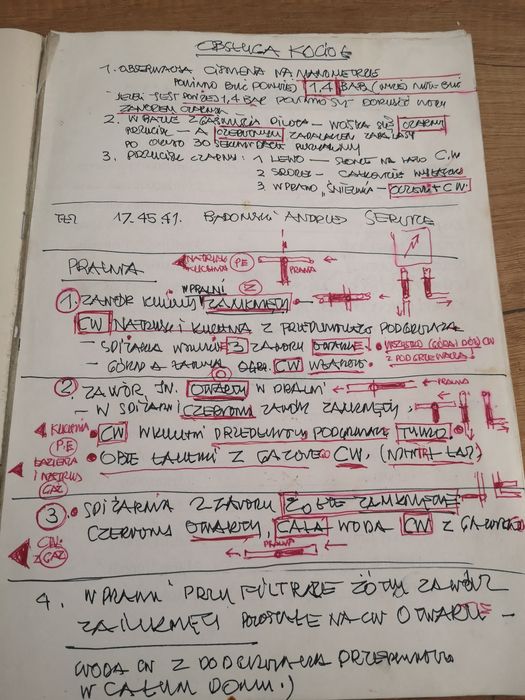 OBSŁUGA KOCIOŁ
1. OBSERWACJA CIŚNIENIA NA MANOMETRZE
POWINNO BYĆ POWYŻEJ 1,4 BAR
JEŻELI JEST PONIŻEJ 1,4 BAR POWINNO SIĘ DOPUŚCIĆ WODY
ZAWOREM CZARNYM
2. W RAZIE ZGAŚNIĘCIA PILOTA — WCISKA SIĘ CZARNY
PRZYCISK — A CZERWONYM ZAPALACZEM ZAPALAMY
PO OKOŁO 30 SEKUNDACH PUSZCZAMY
3. PRZYCISK CZARNY: 1 LEWO — SŁOŃCE NA LATO C.W
2 ŚRODEK — CAŁKOWITE WYŁĄCZ.
3 W PRAWO „ŚNIEŻKA" — OGRZEW + CW.
TEL 17.45.41. BADOWSKI ANDRZEJ SERWICE
PRALNIA NATRYSK KUCHNIA PE PRALNIA
W PRALNI Z
1. ZAWÓR KULOWY ZAMKNIĘTY
CW NATRYSK I KUCHNIA Z PRZEPŁYWOWEGO PODGRZEWACZA
— SPIŻARKA WSZYSTKIE 3 ZAWORY OTWARTE WSZYSTKO (GÓRA I DÓŁ) CW
— GÓRNA ŁAZIENKA OGRZ. CW Z PODGRZEWACZA!
O
2 ZAWÓR JW. OTWARTY W PRALNI PRALNIA
— W SPIŻARNI CZERWONY ZAWÓR ZAMKNIĘTY,
KUCHNIA PE • CW W KUCHNI PRZEPŁYWOWY PODGRZEWACZ TYLKO.
ŁAZIENKA I NATRYSK GAZ • OBIE ŁAZIENKI Z GAZOWEGO CW.
3 • SPIŻARNIA 2 ZAWORY ŻÓŁTE ZAMKNIĘTE
CZERWONY OTWARTY, CAŁA WODA CW Z GAZOWEGO
CW. Z GAZ PRALNIA
4. W PRALNI PRZY FILTRZE ŻÓŁTY ZAWÓR
ZAMKNIĘTY POZOSTAŁE NA CW OTWARTE —
WODA CW Z PODGRZEWACZA PRZEPŁYWOWEGO
W CAŁYM DOMU.)